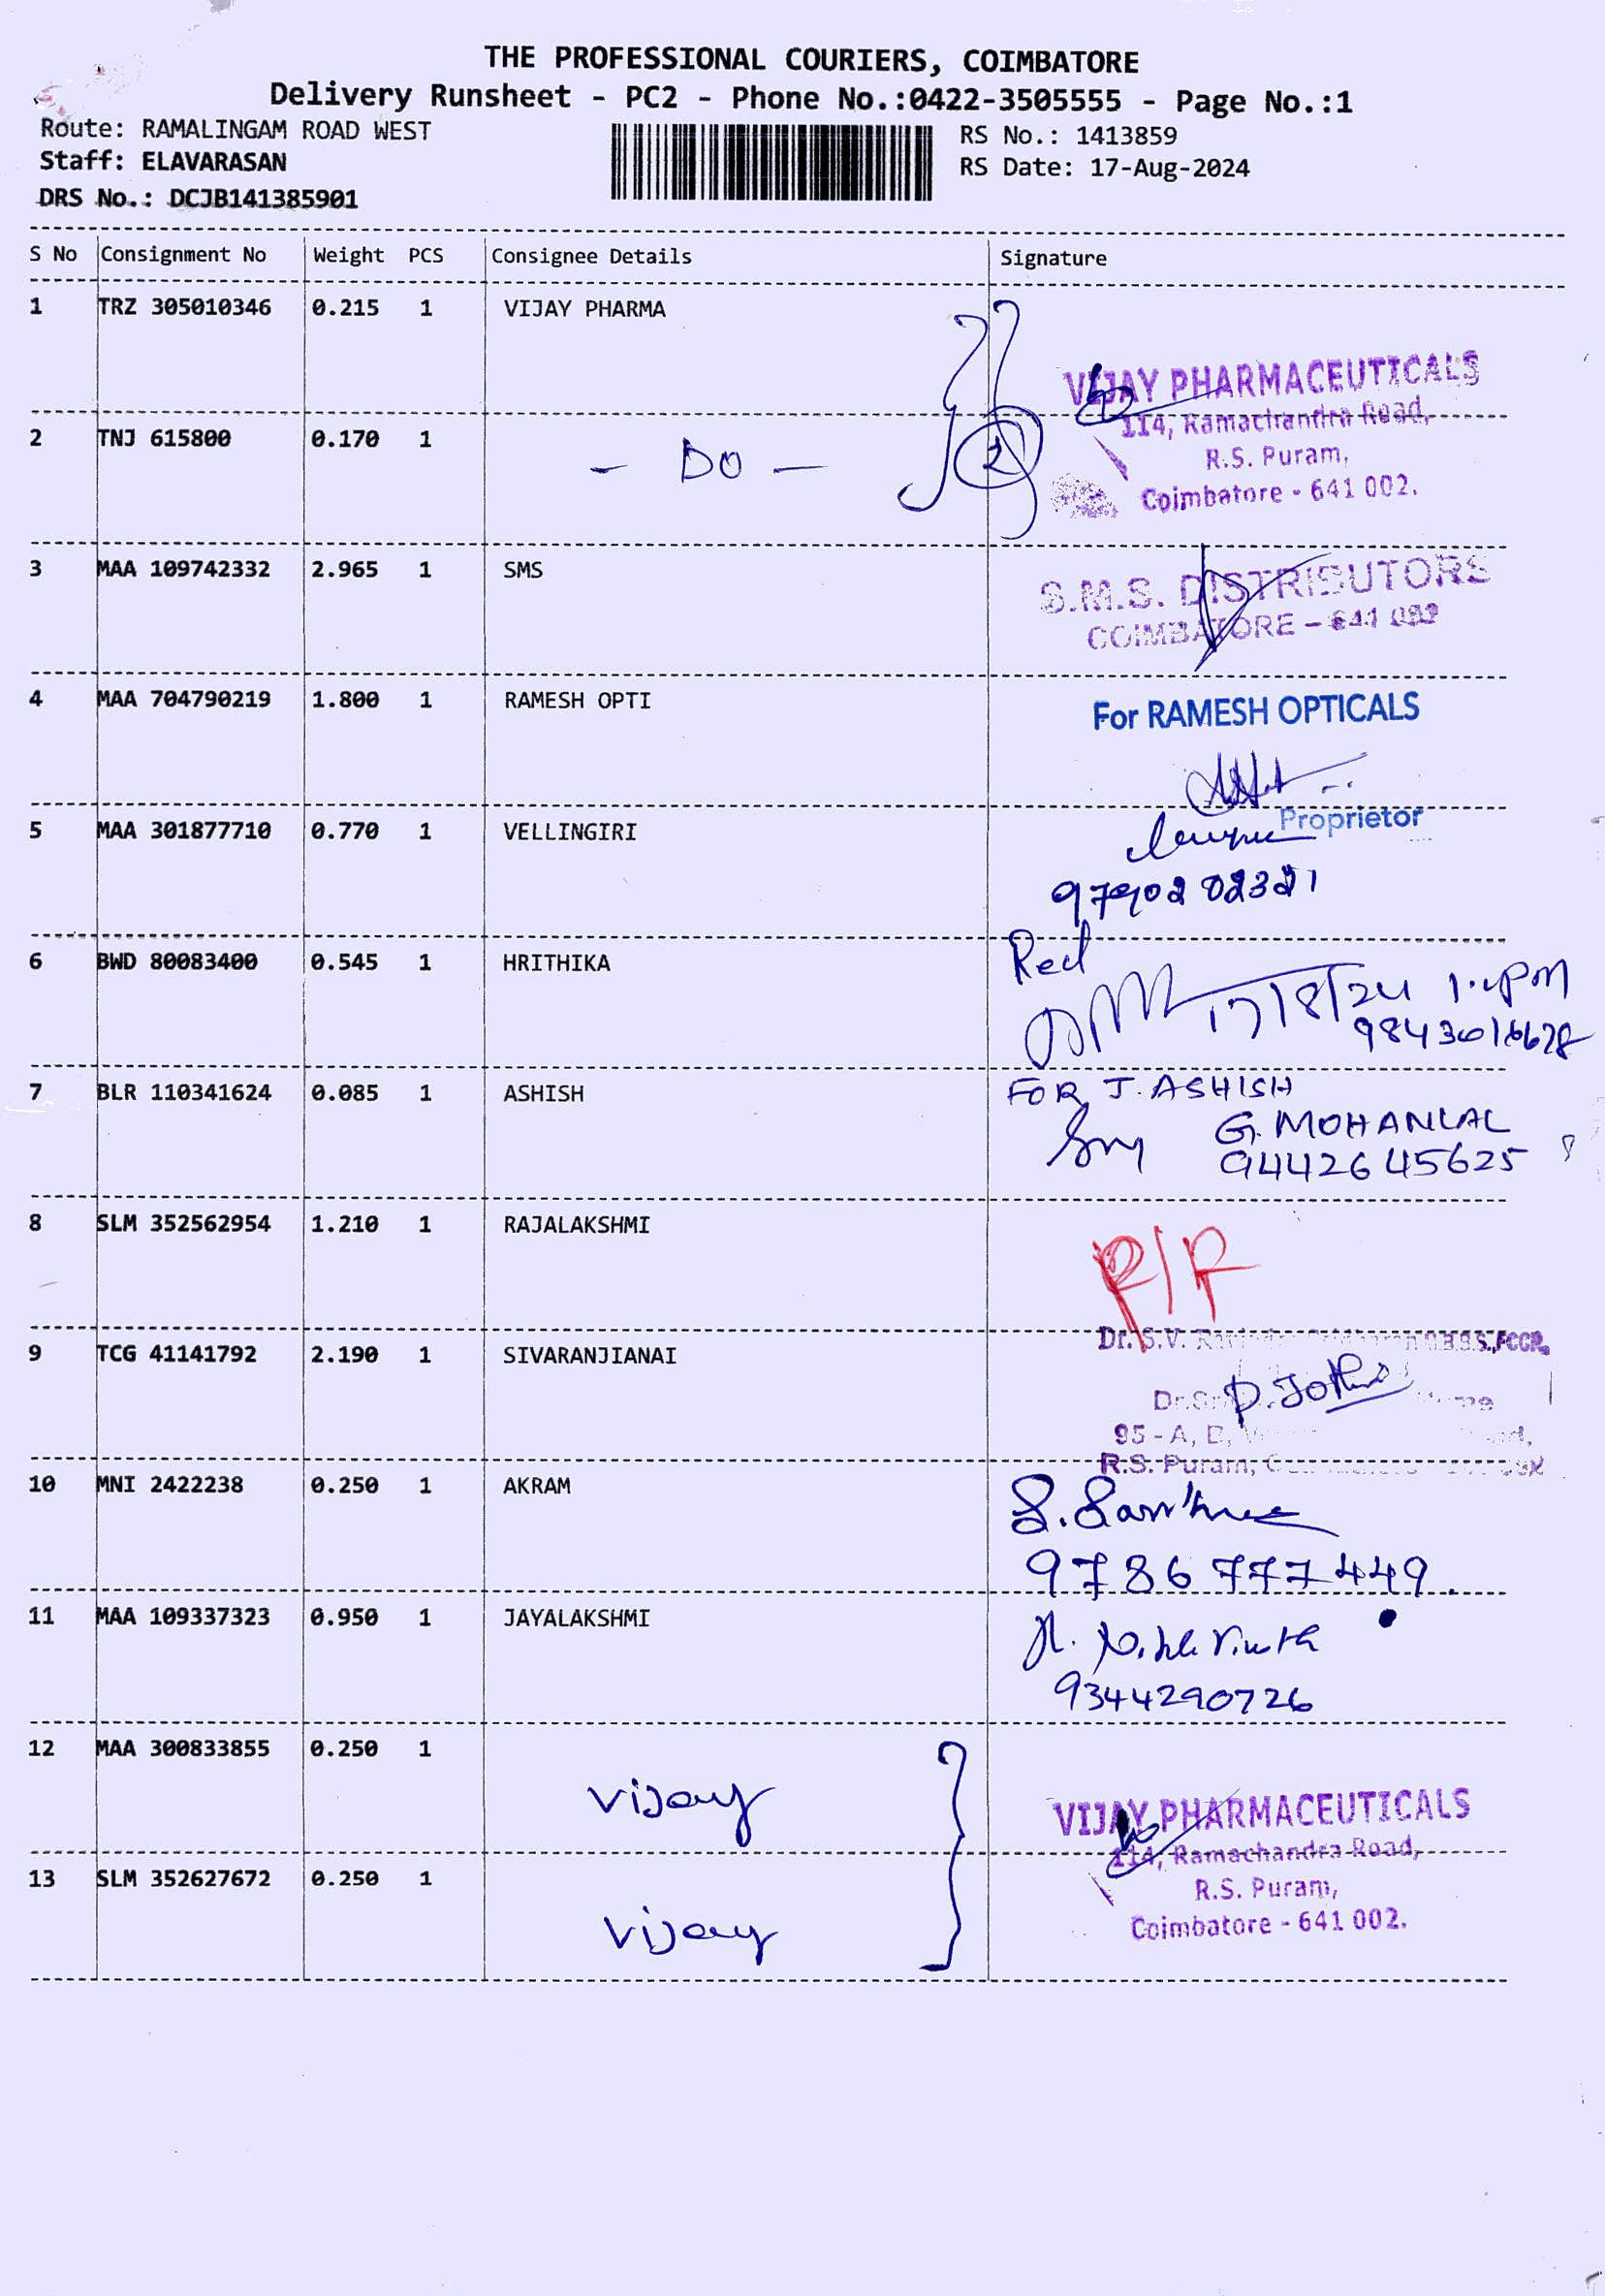 THE PROFESSIONAL COURIERS, COIMBATORE
Delivery Runsheet - PC2 - Phone No.:0422-3505555 - Page No.:1
Route: RAMALINGAM ROAD WEST
Staff: ELAVARASAN
DRS No.: DCJB141385901
RS No.: 1413859
RS Date: 17-Aug-2024
S No Consignment No Weight PCS Consignee Details Signature
1 TRZ 305010346 0.215 1 VIJAY PHARMA
VIJAY PHARMACEUTICALS
114, Ramachandra Road,
R.S. Puram,
Coimbatore - 641 002.
2 TNJ 615800 0.170 1 - DO - 2
3 MAA 109742332 2.965 1 SMS
S.M.S. DISTRIBUTORS
COIMBATORE - 641
4 MAA 704790219 1.800 1 RAMESH OPTI
For RAMESH OPTICALS
Proprietor
5 MAA 301877710 0.770 1 VELLINGIRI
9790202321
6 BWD 80083400 0.545 1 HRITHIKA
Recd
17/8/24
7 BLR 110341624 0.085 1 ASHISH
FOR J. ASHISH
G. MOHANLAL
9442645625
8 SLM 352562954 1.210 1 RAJALAKSHMI
R/R
9 TCG 41141792 2.190 1 SIVARANJIANAI
Dr. S.V.
FCCP.,
95 - A, D,
R.S. Puram,
10 MNI 2422238 0.250 1 AKRAM
9786777449.
11 MAA 109337323 0.950 1 JAYALAKSHMI
9344290726
12 MAA 300833855 0.250 1
Vijay
13 SLM 352627672 0.250 1
Vijay
VIJAY PHARMACEUTICALS
114, Ramachandra Road,
R.S. Puram,
Coimbatore - 641 002.